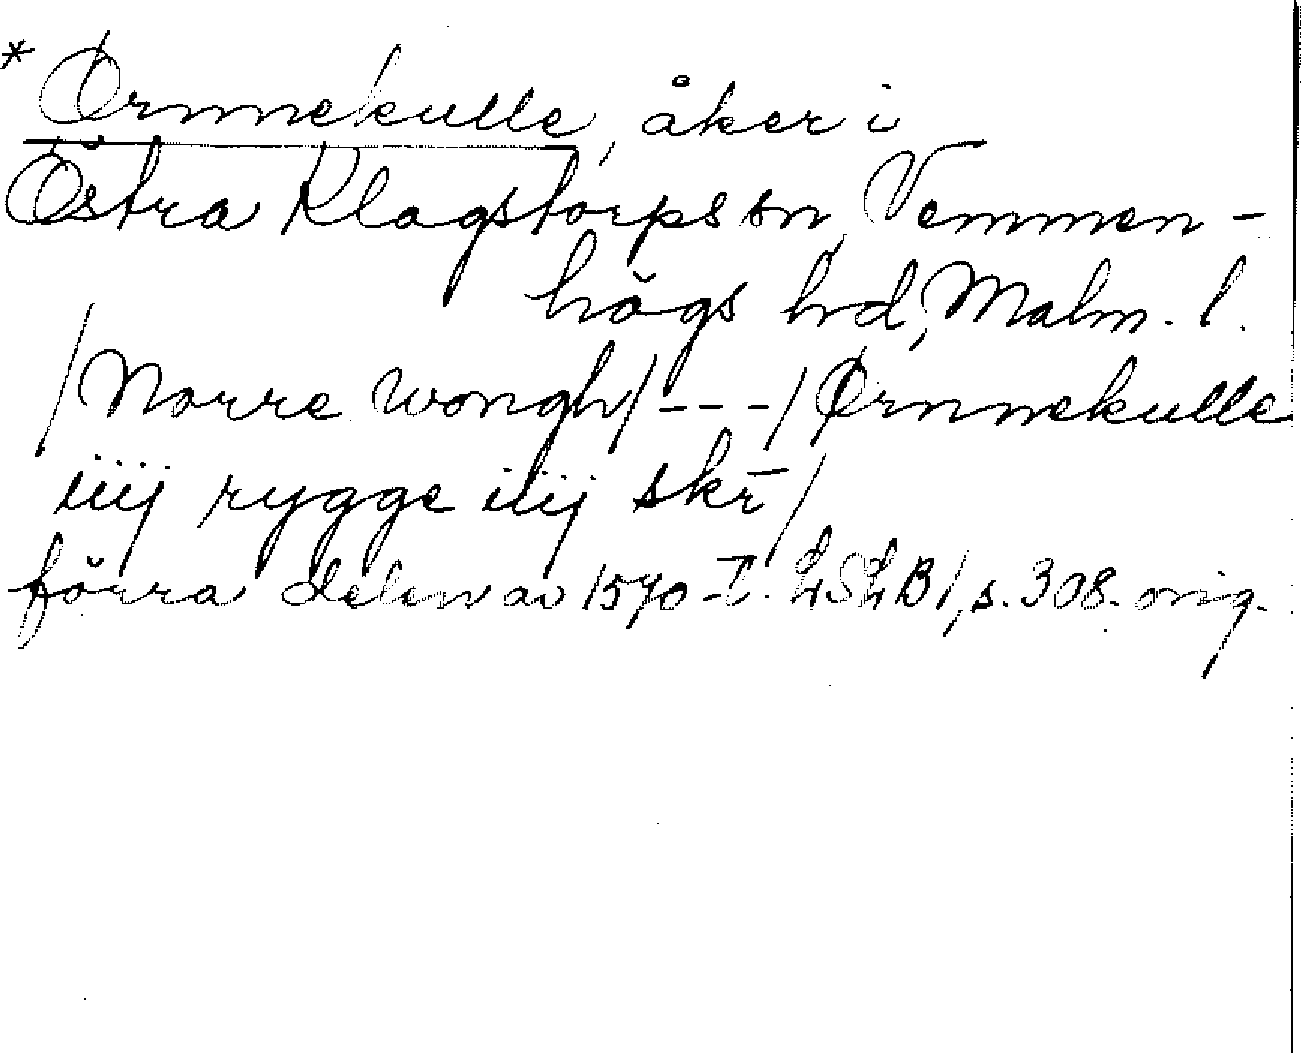 * Ørnnekulle, åker i
Östra Klagstorps sn, Vemmen-
högs hrd, Malm. l.
/Norre wongh/---/Ørnnekulle
iiij rygge iiij skr̄/
förra delen av 1570-t. LSLB1, s. 308. orig.